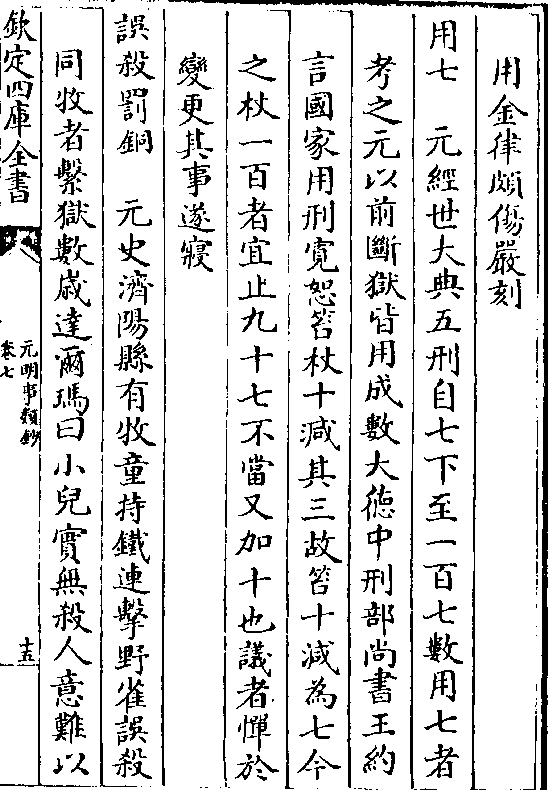 用金律頗傷嚴刻
用七　元經世大典五刑自七下至一百七數用七者
考之元以前斷獄皆用成數大徳中刑部尚書王約
言國家用刑寛恕笞杖十減其三故笞十減為七今
之杖一百者宜止九十七不當又加十也議者憚於
變更其事遂寢
誤殺罰銅　元史濟陽縣有牧童持鐵連擊野雀誤殺
同牧者繫獄數歳達爾瑪曰小兒實無殺人意難以
欽定四庫全書
元明事類鈔
卷七
十五